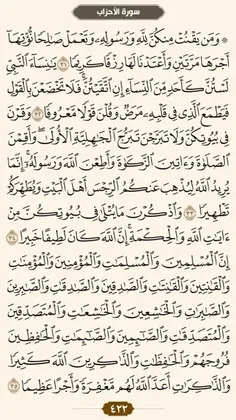 سورة الأحزاب
۞ وَمَن يَقۡنُتۡ مِنكُنَّ لِلَّهِ وَرَسُولِهِۦ وَتَعۡمَلۡ صَٰلِحٗا نُّؤۡتِهَآ
أَجۡرَهَا مَرَّتَيۡنِ وَأَعۡتَدۡنَا لَهَا رِزۡقٗا كَرِيمٗا ٣١ يَٰنِسَآءَ ٱلنَّبِيِّ
لَسۡتُنَّ كَأَحَدٖ مِّنَ ٱلنِّسَآءِ إِنِ ٱتَّقَيۡتُنَّۚ فَلَا تَخۡضَعۡنَ بِٱلۡقَوۡلِ
فَيَطۡمَعَ ٱلَّذِي فِي قَلۡبِهِۦ مَرَضٞ وَقُلۡنَ قَوۡلٗا مَّعۡرُوفٗا ٣٢ وَقَرۡنَ
فِي بُيُوتِكُنَّ وَلَا تَبَرَّجۡنَ تَبَرُّجَ ٱلۡجَٰهِلِيَّةِ ٱلۡأُولَىٰۖ وَأَقِمۡنَ
ٱلصَّلَوٰةَ وَءَاتِينَ ٱلزَّكَوٰةَ وَأَطِعۡنَ ٱللَّهَ وَرَسُولَهُۥٓۚ إِنَّمَا
يُرِيدُ ٱللَّهُ لِيُذۡهِبَ عَنكُمُ ٱلرِّجۡسَ أَهۡلَ ٱلۡبَيۡتِ وَيُطَهِّرَكُمۡ
تَطۡهِيرٗا ٣٣ وَٱذۡكُرۡنَ مَا يُتۡلَىٰ فِي بُيُوتِكُنَّ مِنۡ
ءَايَٰتِ ٱللَّهِ وَٱلۡحِكۡمَةِۚ إِنَّ ٱللَّهَ كَانَ لَطِيفًا خَبِيرًا ٣٤
إِنَّ ٱلۡمُسۡلِمِينَ وَٱلۡمُسۡلِمَٰتِ وَٱلۡمُؤۡمِنِينَ وَٱلۡمُؤۡمِنَٰتِ
وَٱلۡقَٰنِتِينَ وَٱلۡقَٰنِتَٰتِ وَٱلصَّٰدِقِينَ وَٱلصَّٰدِقَٰتِ وَٱلصَّٰبِرِينَ
وَٱلصَّٰبِرَٰتِ وَٱلۡخَٰشِعِينَ وَٱلۡخَٰشِعَٰتِ وَٱلۡمُتَصَدِّقِينَ
وَٱلۡمُتَصَدِّقَٰتِ وَٱلصَّٰٓئِمِينَ وَٱلصَّٰٓئِمَٰتِ وَٱلۡحَٰفِظِينَ
فُرُوجَهُمۡ وَٱلۡحَٰفِظَٰتِ وَٱلذَّٰكِرِينَ ٱللَّهَ كَثِيرٗا
وَٱلذَّٰكِرَٰتِ أَعَدَّ ٱللَّهُ لَهُم مَّغۡفِرَةٗ وَأَجۡرًا عَظِيمٗا ٣٥
٤٢٢